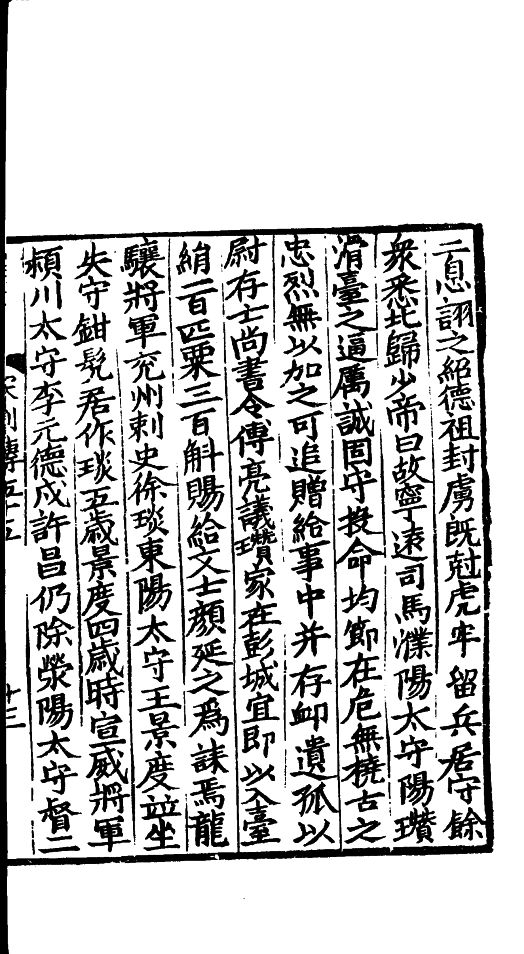 二息詡之紹德祖封虜既尅虎牢留兵居守餘
衆悉北歸少帝曰故寧遠司馬濮陽太守陽瓚
滑臺之逼厲誠固守投命均節在危無撓古之
忠烈無以加之可追贈給事中并存卹遺孤以
尉存亡尚書令傅亮議瓚家在彭城宜即以入臺
絹一百匹粟三百斛賜給文士顔延之爲誄焉龍
驤將軍兖州刺史徐琰東陽太守王景度並坐
失守鉗髡居作琰五歲景度四歲時宣威將軍
頴川太守李元德戍許昌仍除滎陽太守督二
列傳五十五
十三